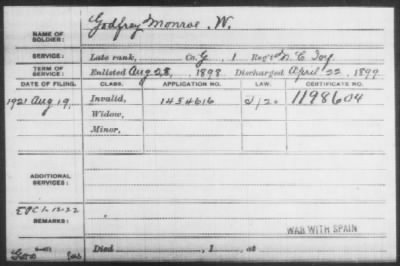 Godfrey Monroe W.
NAME OF SOLDIER:
SERVICE: Late rank, Co. G, 1 Reg't N.C. Inf
TERM OF SERVICE: Enlisted Aug 28, 1898 Discharged April 22, 1899
DATE OF FILING. CLASS. APPLICATION NO. LAW. CERTIFICATE NO.
1921 Aug 19, Invalid, 1454616 1198604
Widow,
Minor,
ADDITIONAL SERVICES:
1-12-22
REMARKS:
WAR WITH SPAIN
Died , 1 , at